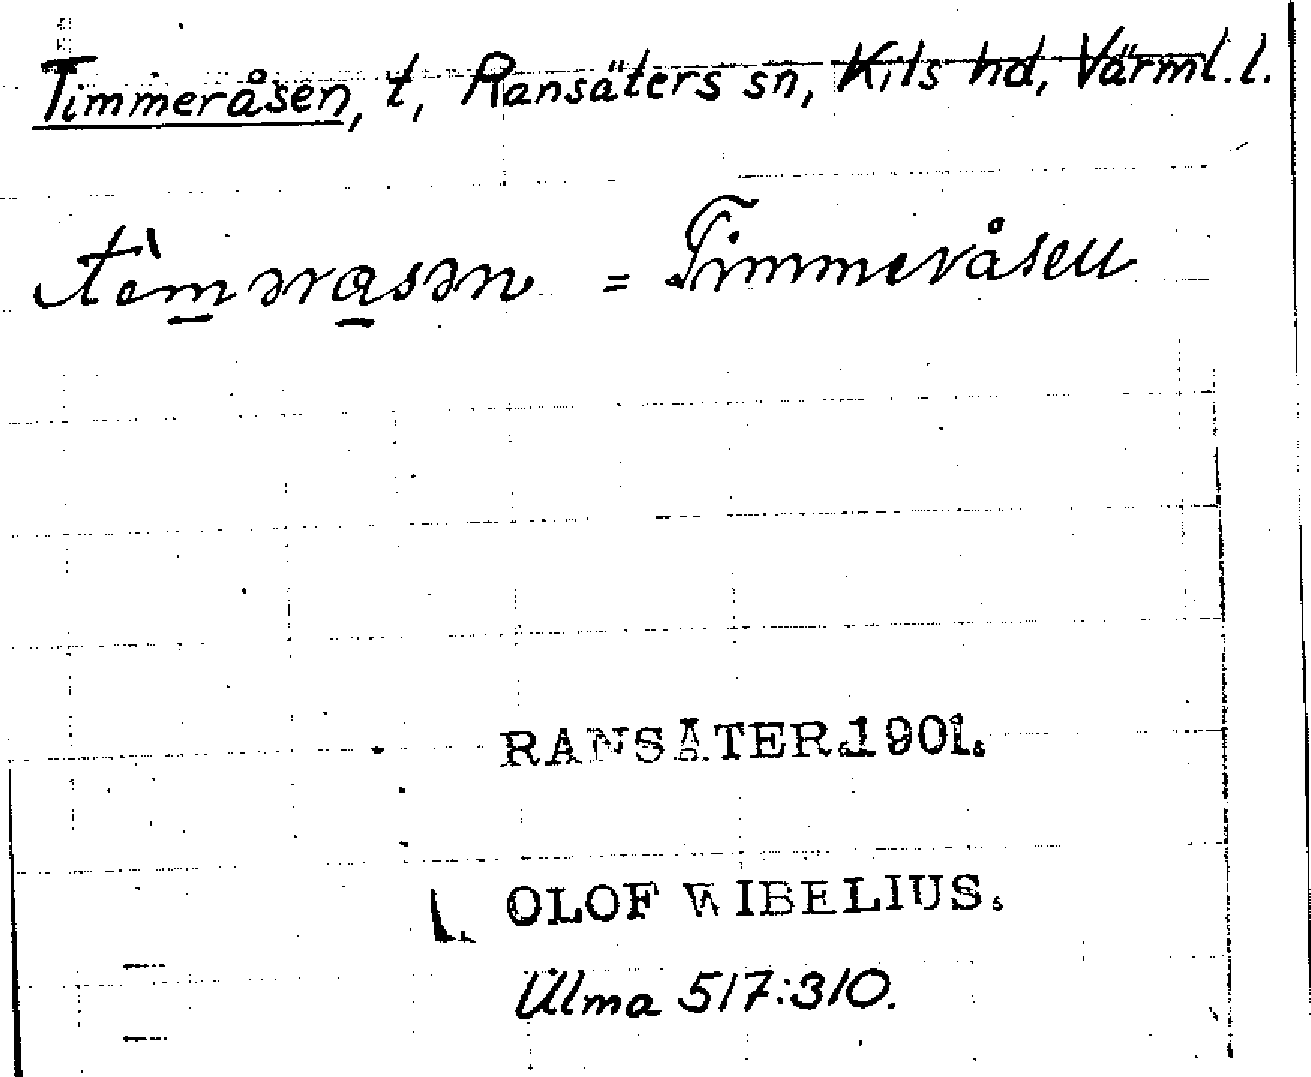 Timmeråsen, t, Ransäters sn, Kils hd, Värml. l.
= Timmeråsen
RANSÄTER.1901.
OLOF WIBELIUS.
Ulma 517:310.